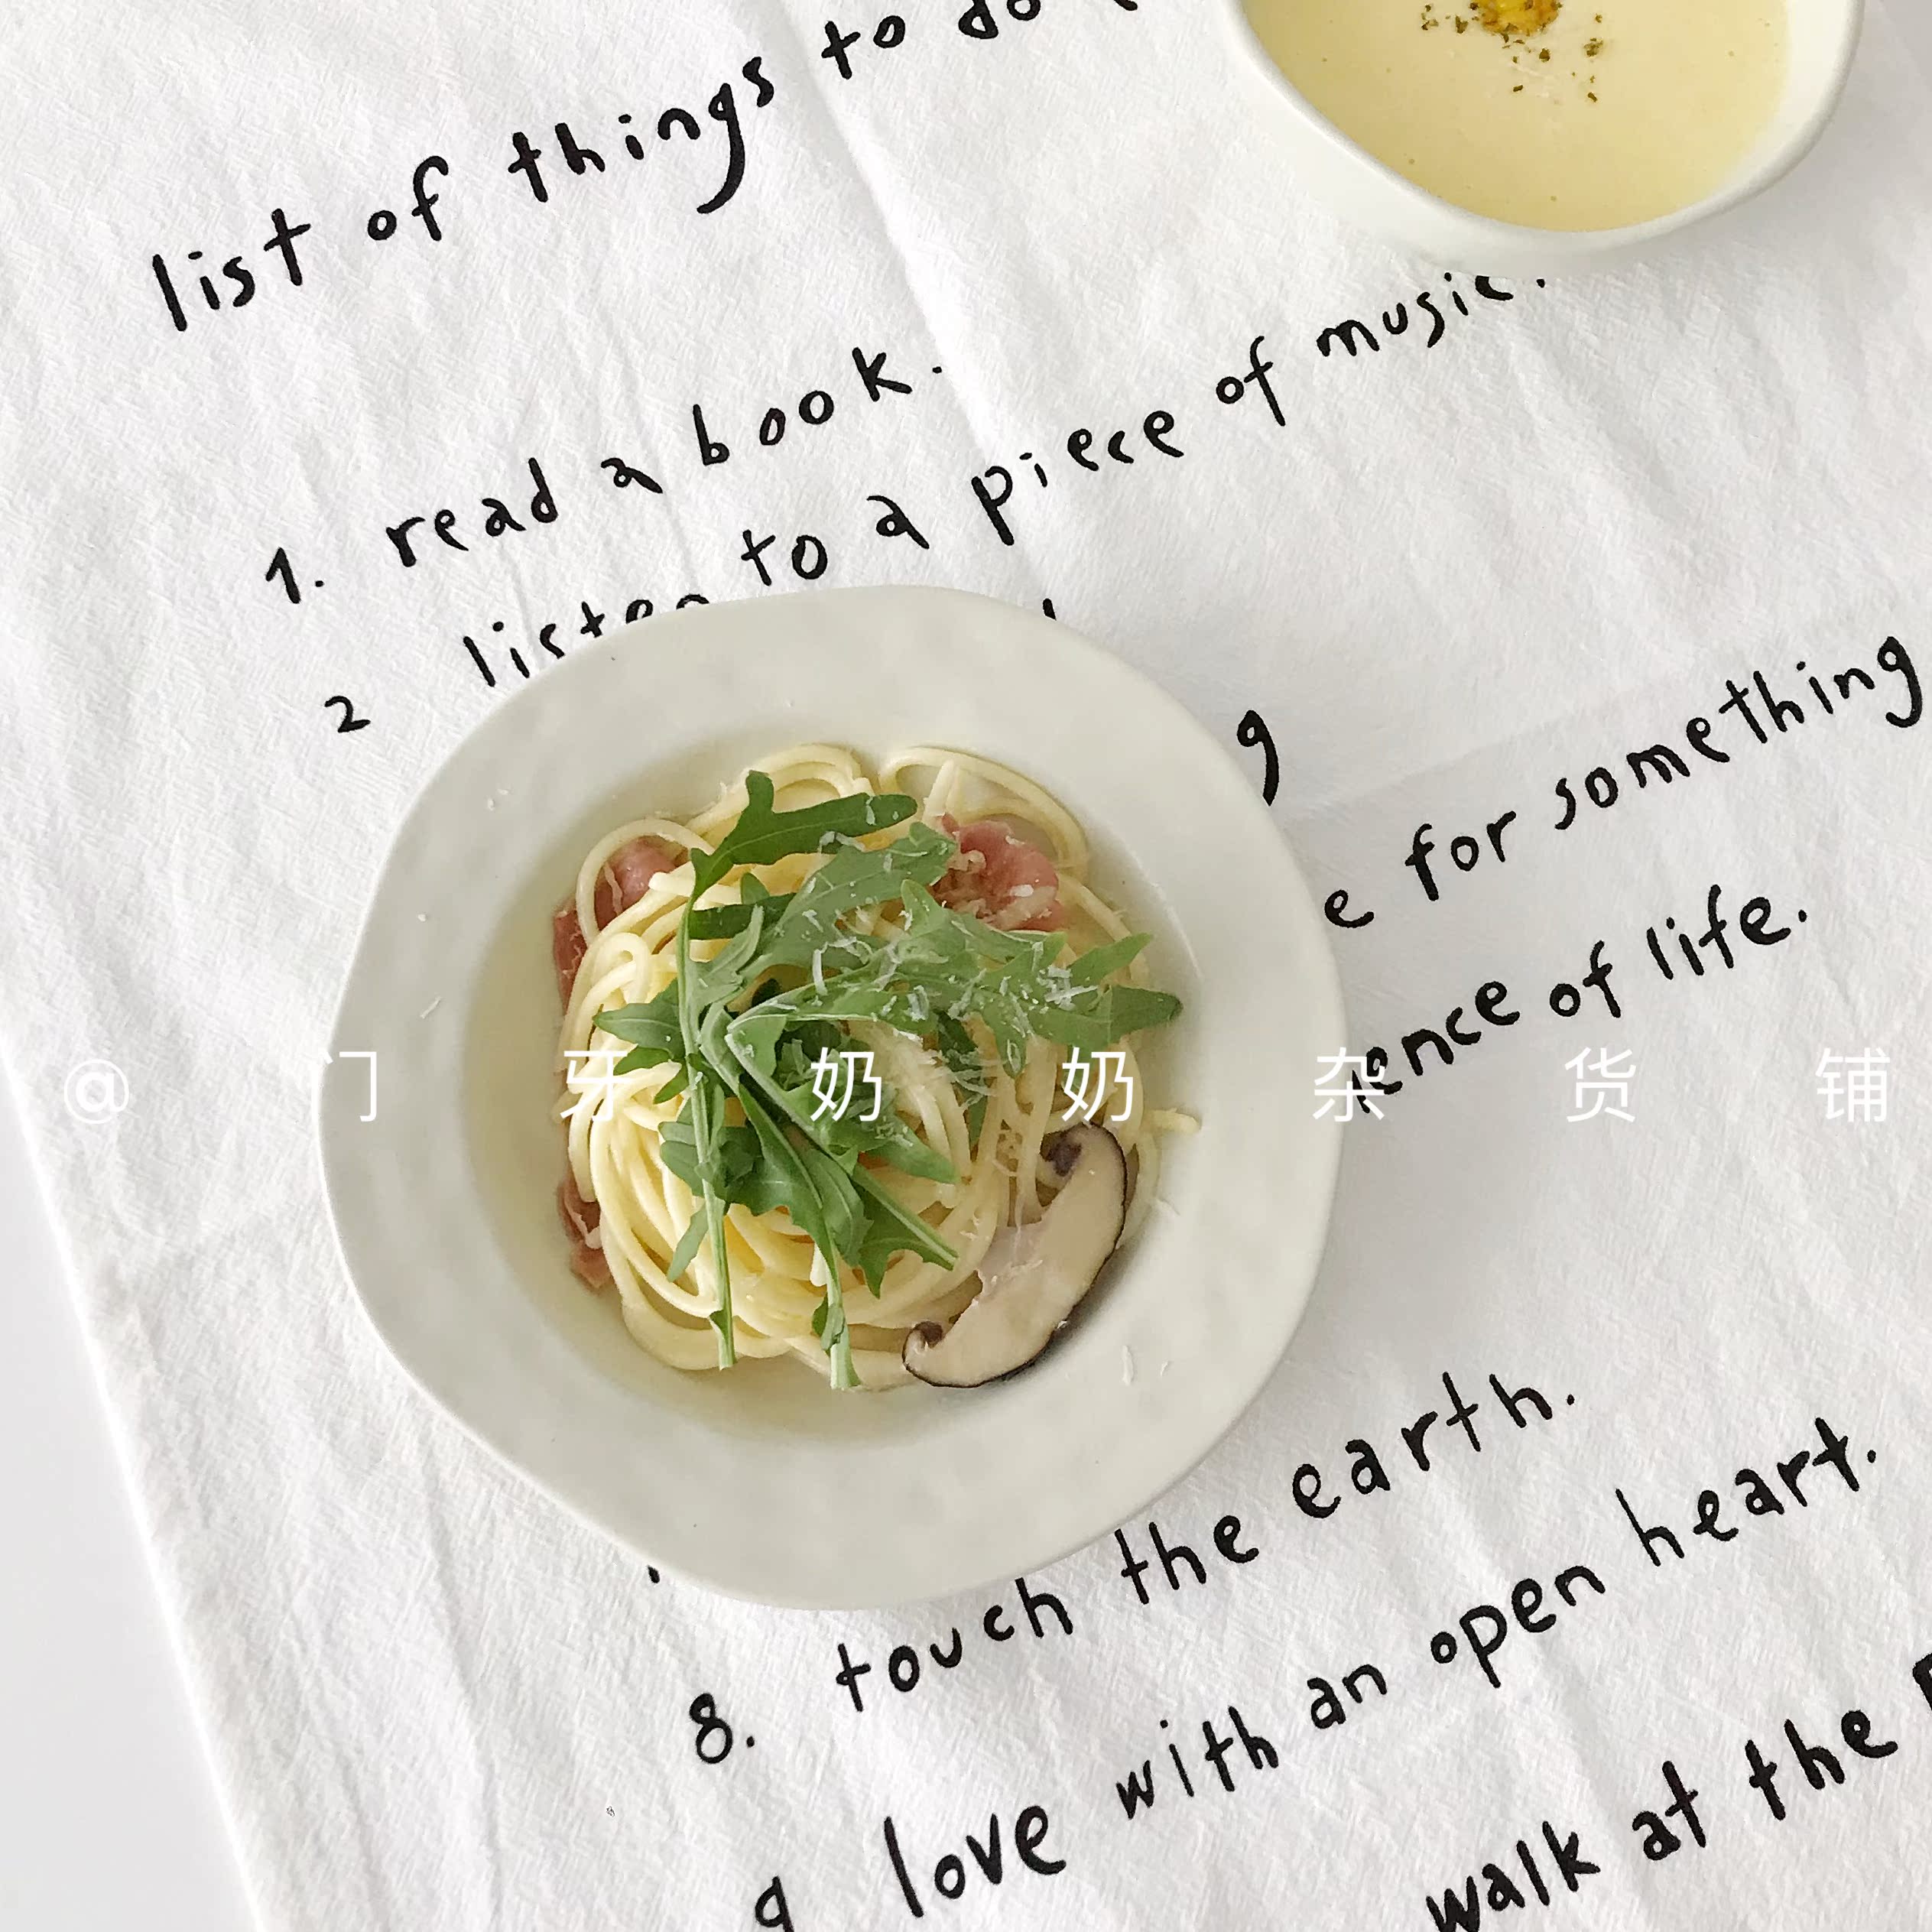 list of things to do
1. read a book.
2 listen to a piece of music.
g
e for something
ence of life.
@门牙奶奶杂货铺
8. touch the earth.
9 love with an open heart.
walk at the